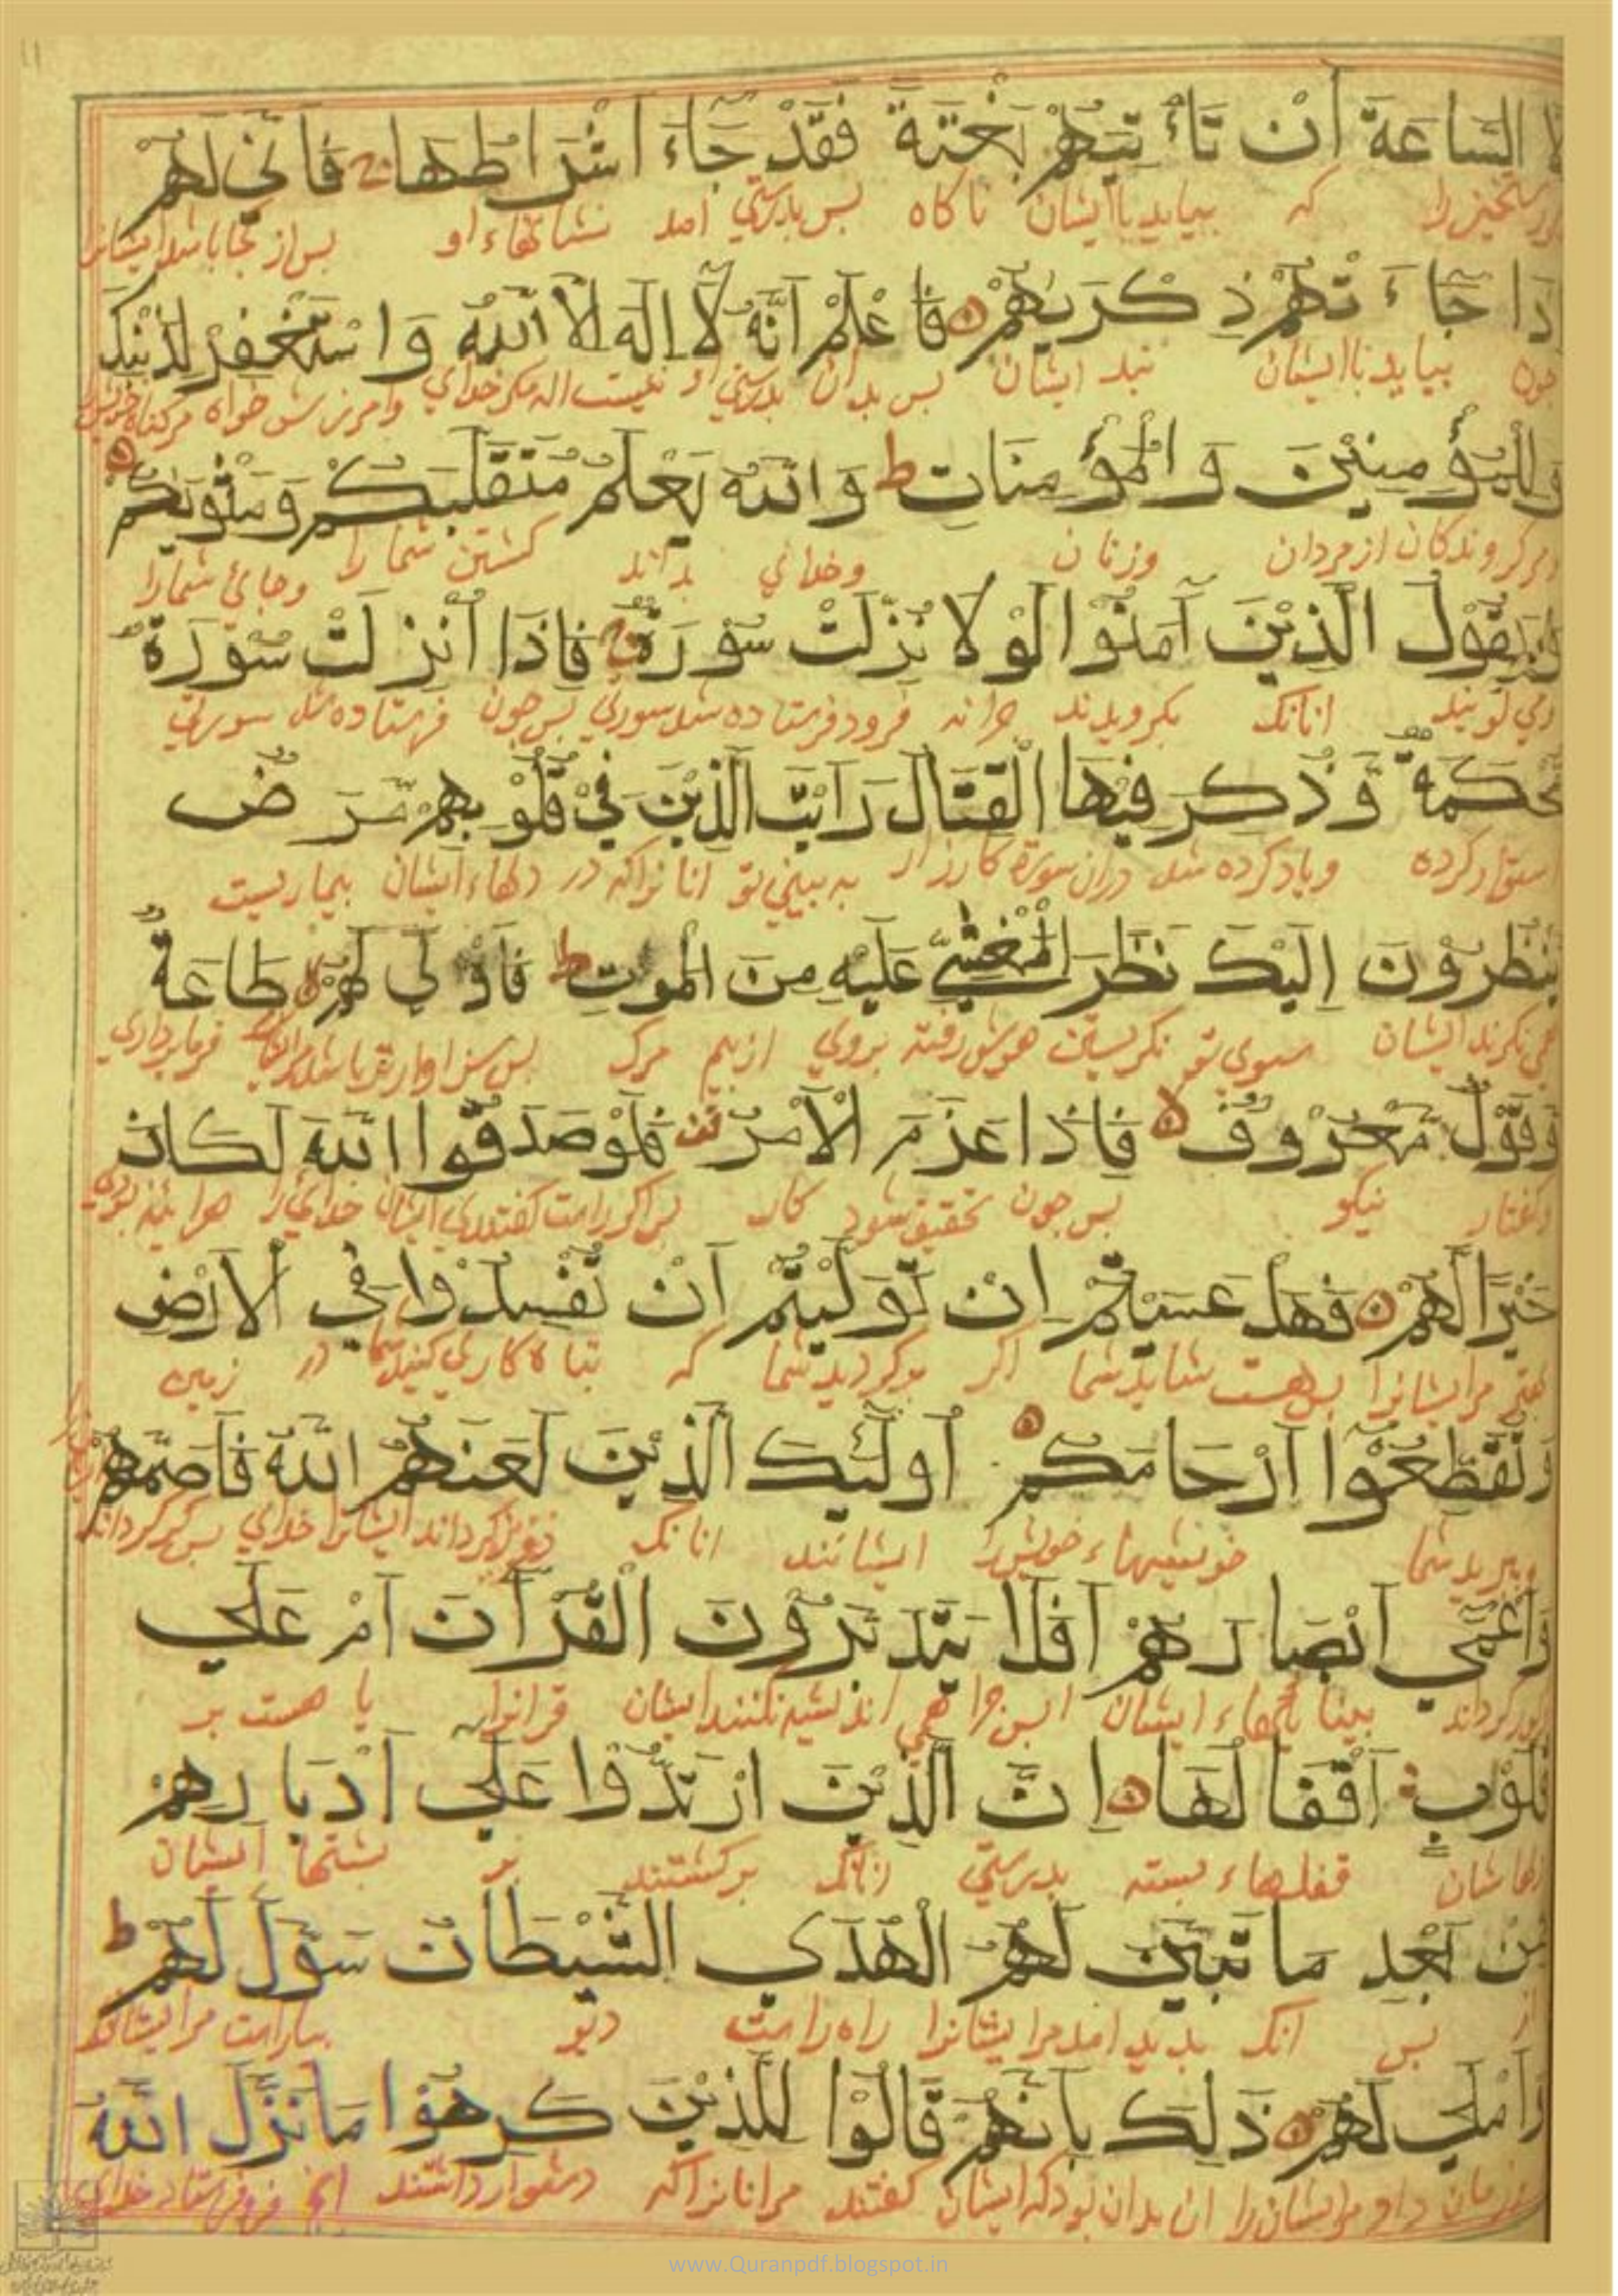 لا الساعة أن تأتيهم بغتة فقد جاء أشراطها ج فأنى لهم
رستخيز را که بیاید باایشان ناکاه بس بدرستي امد نشانهاء او بس از کجا باشد ایشانرا
ذا جاءتهم ذكريهم فاعلم أنه لا إله إلا الله واستغفر لذنبك
جون بیاید باایشان بند ایشان بس بدان بدرستي او نیست اله مکر خداي وامرزش خواه مرکناه خویش را
وللمؤمنين والمؤمنات ط والله يعلم متقلبكم ومثويكم
ومر کروندکان از مردان وزنان وخداي بداند کشتن شما را وجائ شمارا
ويقول الذين آمنوا لولا نزلت سورة ج فاذا أنزلت سورة
مي کویند انانک بکرویدند جرا نه فرود فرستاده شد سورتي بس جون فرستاده شد سورتي
محكمة وذكر فيها القتال رأيت الذين في قلوبهم مرض
استوار کرده ویاد کرده شد دران سورة کارزار به بیني تو انانرا که در دلهاء ایشان بیماریست
ينظرون إليك نظر المغشي عليه من الموت ط فأولى لهم لا طاعة
مي نکرند ایشان سوي تو نکریستن هوش رفته بروي از بیم مرک بس سزاوارتر باشد فرمانبرداري
وقول معروف فاذا عزم الأمر قف فلو صدقوا الله لكان
وکفتار نیکو بس جون تحقیق شود کار بس اکر راست کفتندي ایشان خدایرا هراینه بودي
خيرا لهم فهل عسيتم ان توليتم أن تفسدوا في الأرض
بهتر مرایشانرا بس هست شاید شما اکر برکردید شما که تباه کاري کنید شما در زمین
وتقطعوا أرحامكم أولئك الذين لعنهم الله فأصمهم
وببرید شما خویشیهاء خویش را ایشانند انانک ایشانرا خداي بس کر کرداند
وأعمى أبصارهم أفلا يتدبرون القرآن أم على
وکور کرداند بیناییهاء ایشان ایس جرا همي اندیشه نکنند ایشان قرانرا یا هست بر
قلوب أقفالها إن الذين ارتدوا على أدبارهم
دلهاشان قفلهاء بسته بدرستي انانک برکشتند بر بشتها ایشان
من بعد ما تبين لهم الهدى الشيطان سول لهم ط
از بس انک بدید امد مرایشانرا راه راست دیو بیاراست مرایشانرا
وأملى لهم ذلك بأنهم قالوا للذين كرهوا ما نزل الله
وزمان داد مرایشان را ان بدان بود که ایشان کفتند مرانانرا که دشوار داشتند انج فروفرستاد خداي
www.Quranpdf.blogspot.in